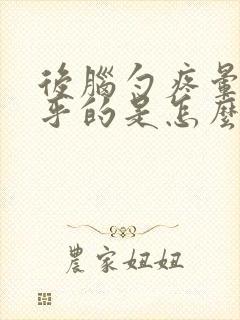 後腦勺疼暈
乎的是怎麼
農家妞妞